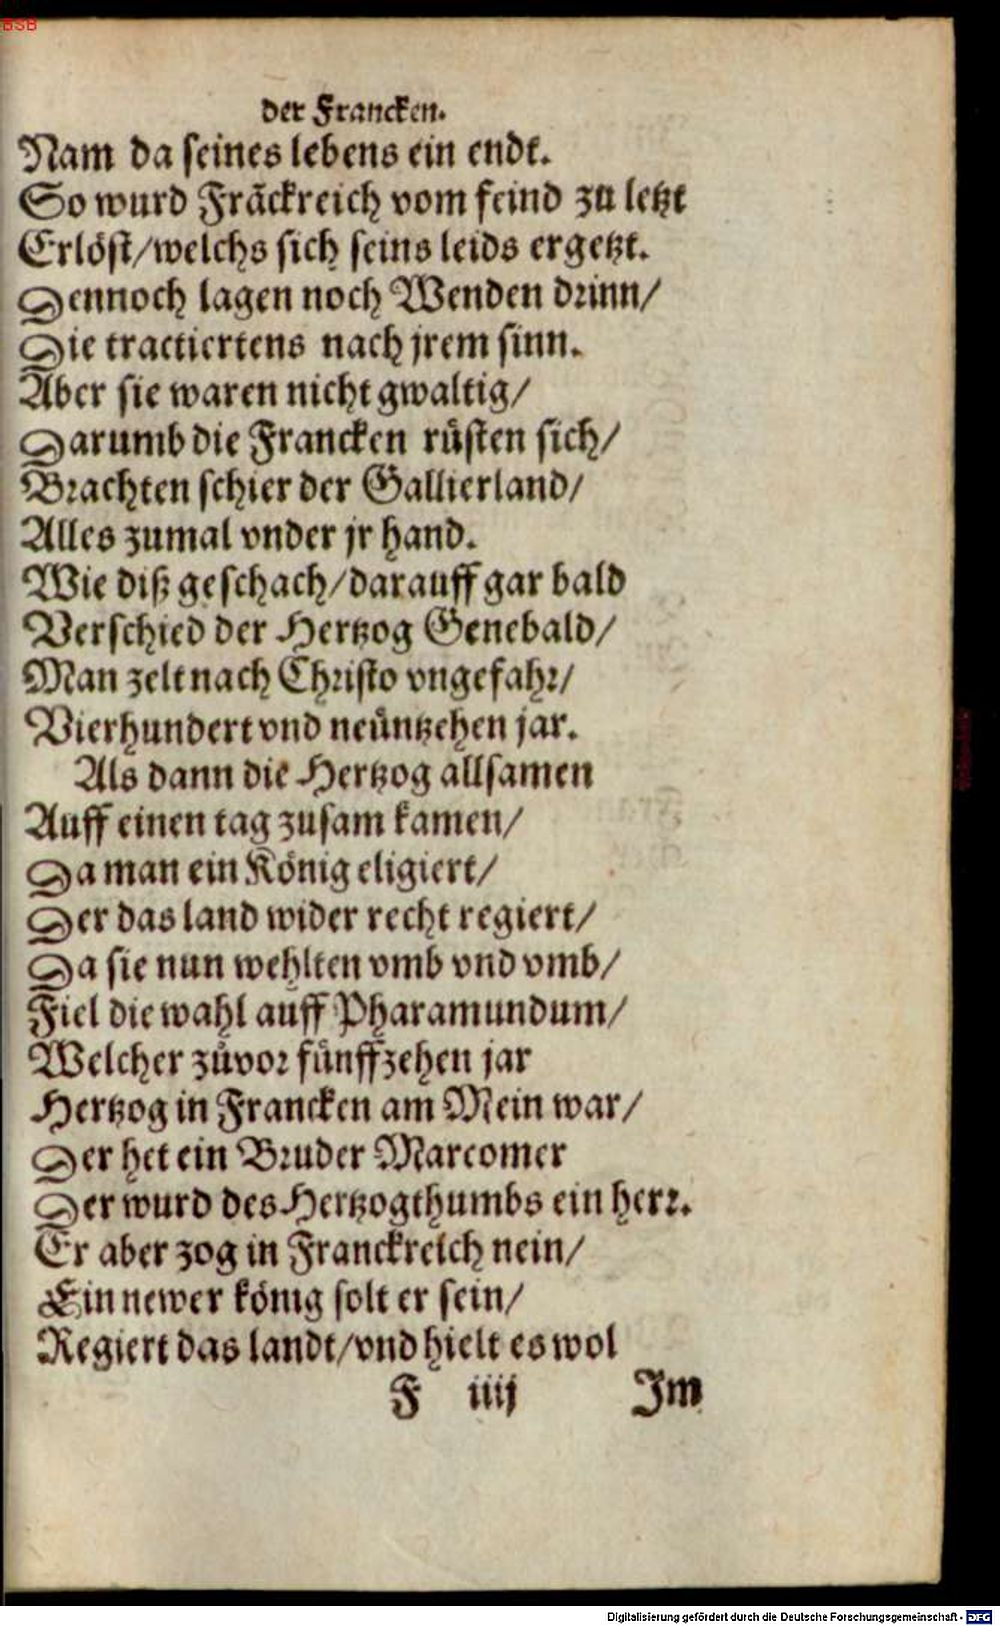 BSB
der Francken.
Nam da seines lebens ein endt.
So wurd Frãckreich vom feind zu letzt
Erlöst/welchs sich seins leids ergetzt.
Dennoch lagen noch Wenden drinn/
Die tractiertens nach jrem sinn.
Aber sie waren nicht gwaltig/
Darumb die Francken rüsten sich/
Brachten schier der Gallierland/
Alles zumal vnder jr hand.
Wie diß geschach/darauff gar bald
Verschied der Hertzog Genebald/
Man zelt nach Christo vngefahr/
Vierhundert vnd neüntzehen jar.
Als dann die Hertzog allsamen
Auff einen tag zusam kamen/
Da man ein König eligiert/
Der das land wider recht regiert/
Da sie nun wehlten vmb vnd vmb/
Fiel die wahl auff Pharamundum/
Welcher zůvor fünffzehen jar
Hertzog in Francken am Mein war/
Der het ein Bruder Marcomer
Der wurd des Hertzogthumbs ein herr.
Er aber zog in Franckreich nein/
Ein newer könig solt er sein/
Regiert das landt/vnd hielt es wol
F iiij Im
Digitalisierung gefördert durch die Deutsche Forschungsgemeinschaft - DFG